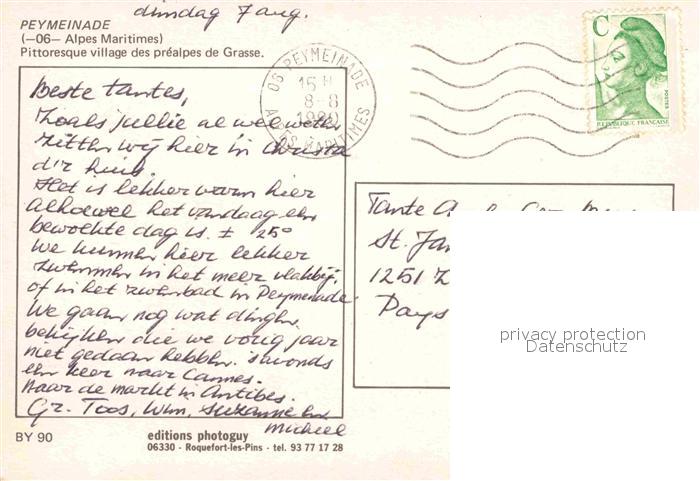 dinsdag 7 aug.
PEYMEINADE
(—06— Alpes Maritimes)
Pittoresque village des préalpes de Grasse.
C
POSTES
RÉPUBLIQUE FRANÇAISE
06 PEYMEINADE
15 H
8-8
1990
ALPES MARITIMES
Beste tantes,
Zoals jullie al wel weten
zitten wij hier in Christa
d'r huis.
Het is lekker warm hier
alhoewel het vandaag een
bewolkte dag is. ± 25°
We kunnen hier lekker
zwemmen in het meer vlakbij
of in het zwembad in Peymenade
We gaan nog wat dingen
bekijken die we vorig jaar
niet gedaan hebben. 's avonds
een keer naar Cannes.
Naar de markt in Antibes.
Gr. Toos, Wim, Suzanne en
Michel
Tante
St. Jan
1251
Pays
privacy protection
Datenschutz
BY 90
editions photoguy
06330 - Roquefort-les-Pins - tel. 93 77 17 28